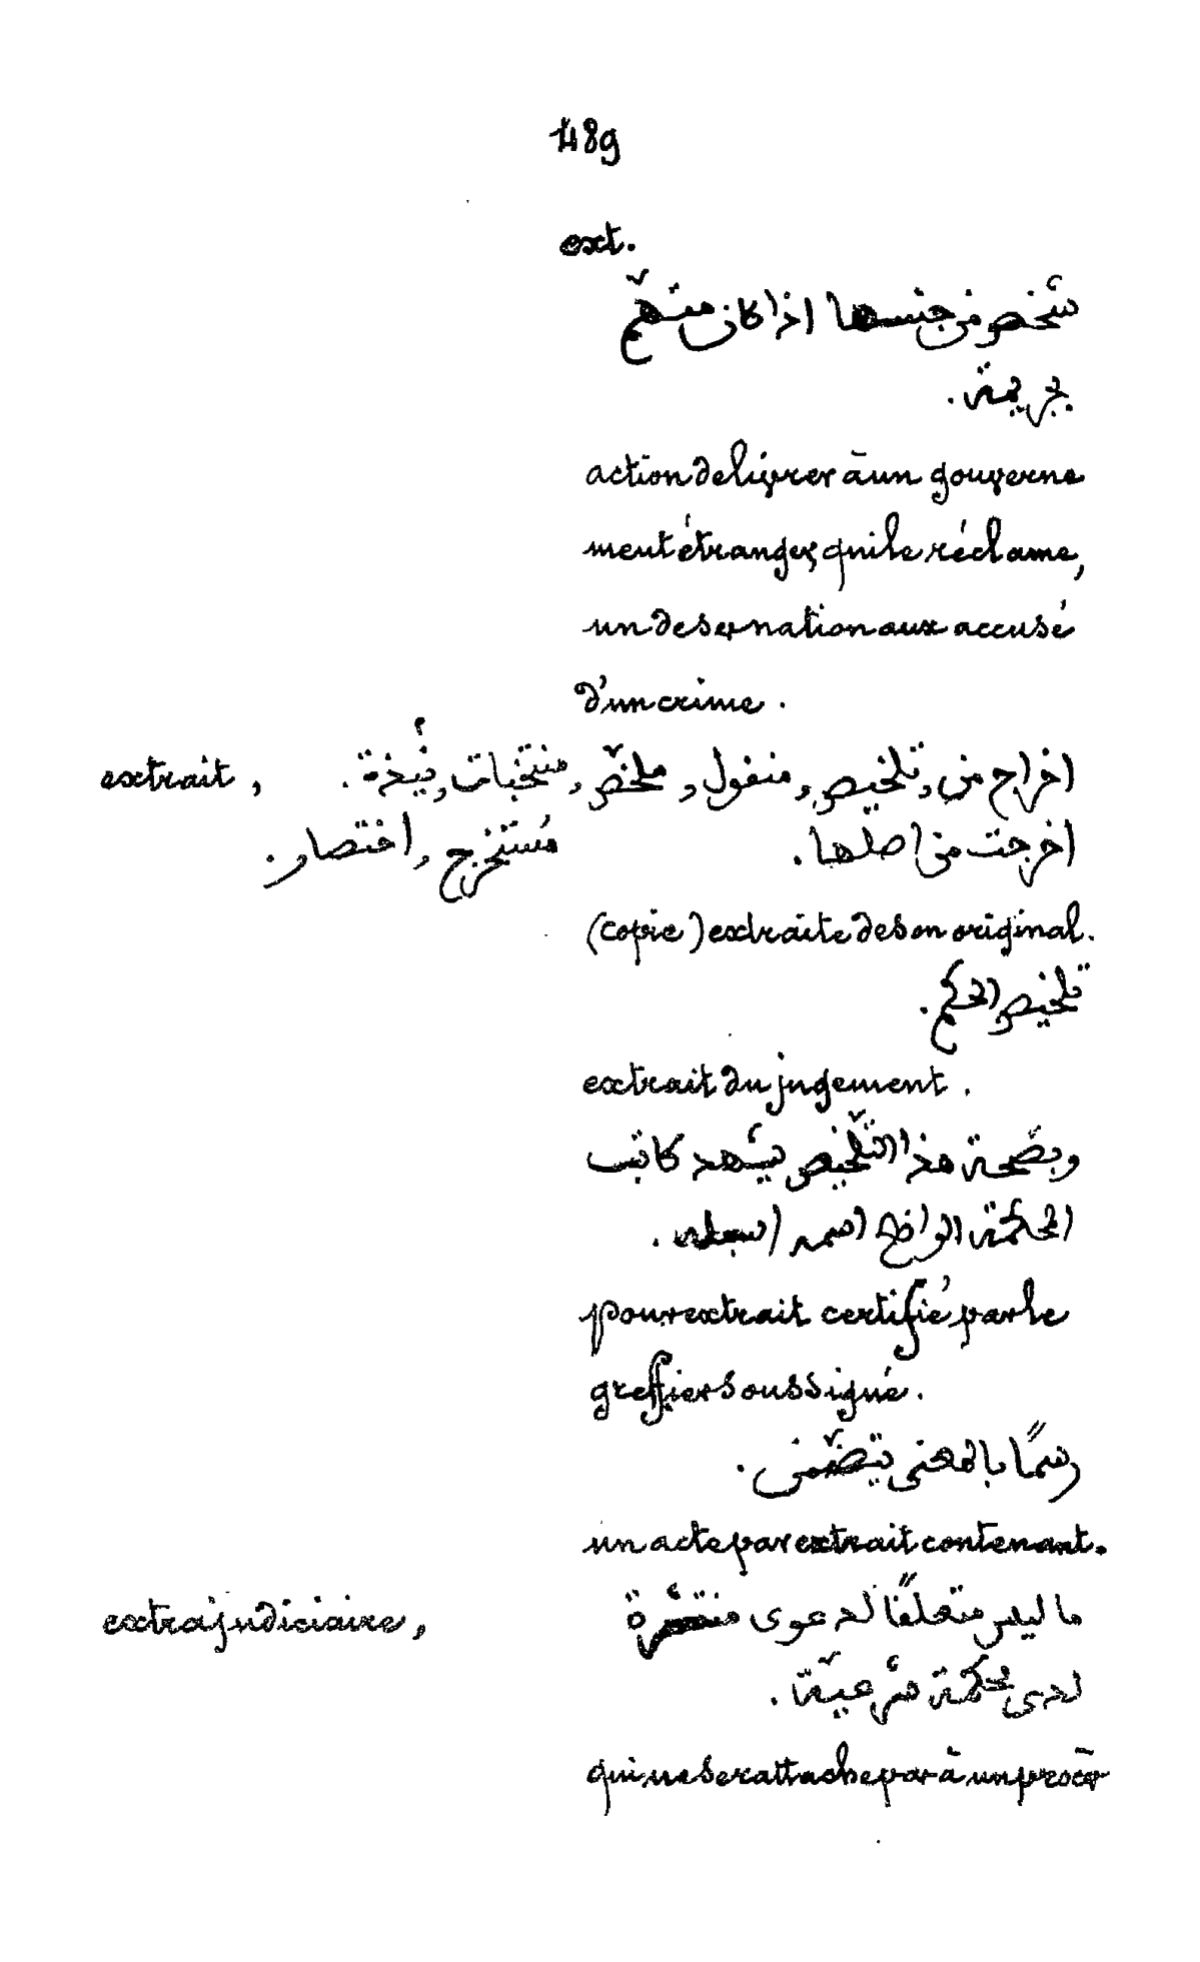 1489
ext.
شخص من جنسها اذا كان متهّم
بجريمة.
action de livrer à un gouverne
ment étranger, qui le réclame,
un de ses nationaux accusé
d'un crime.
extrait, اخراج من, تلخيص, منقول, ملخّص, منتخبات, نُبذة.
اخرجت من اصلها. مُستخرج, اختصار.
(copie) extraite de son original.
تلخيص الحكم.
extrait du jugement.
وبصحة هذا التلّخيص يشهد كاتب
المحكمة الواضع اسمه اسفله.
pour extrait certifié par le
greffier soussigné.
رسمًا بالمعنى يتضمّن.
un acte par extrait contenant.
extrajudiciaire, ما ليس متعلقًا لدعوى منتشرة
لدى محكمة شرعيّة.
qui ne se rattache par à un procès